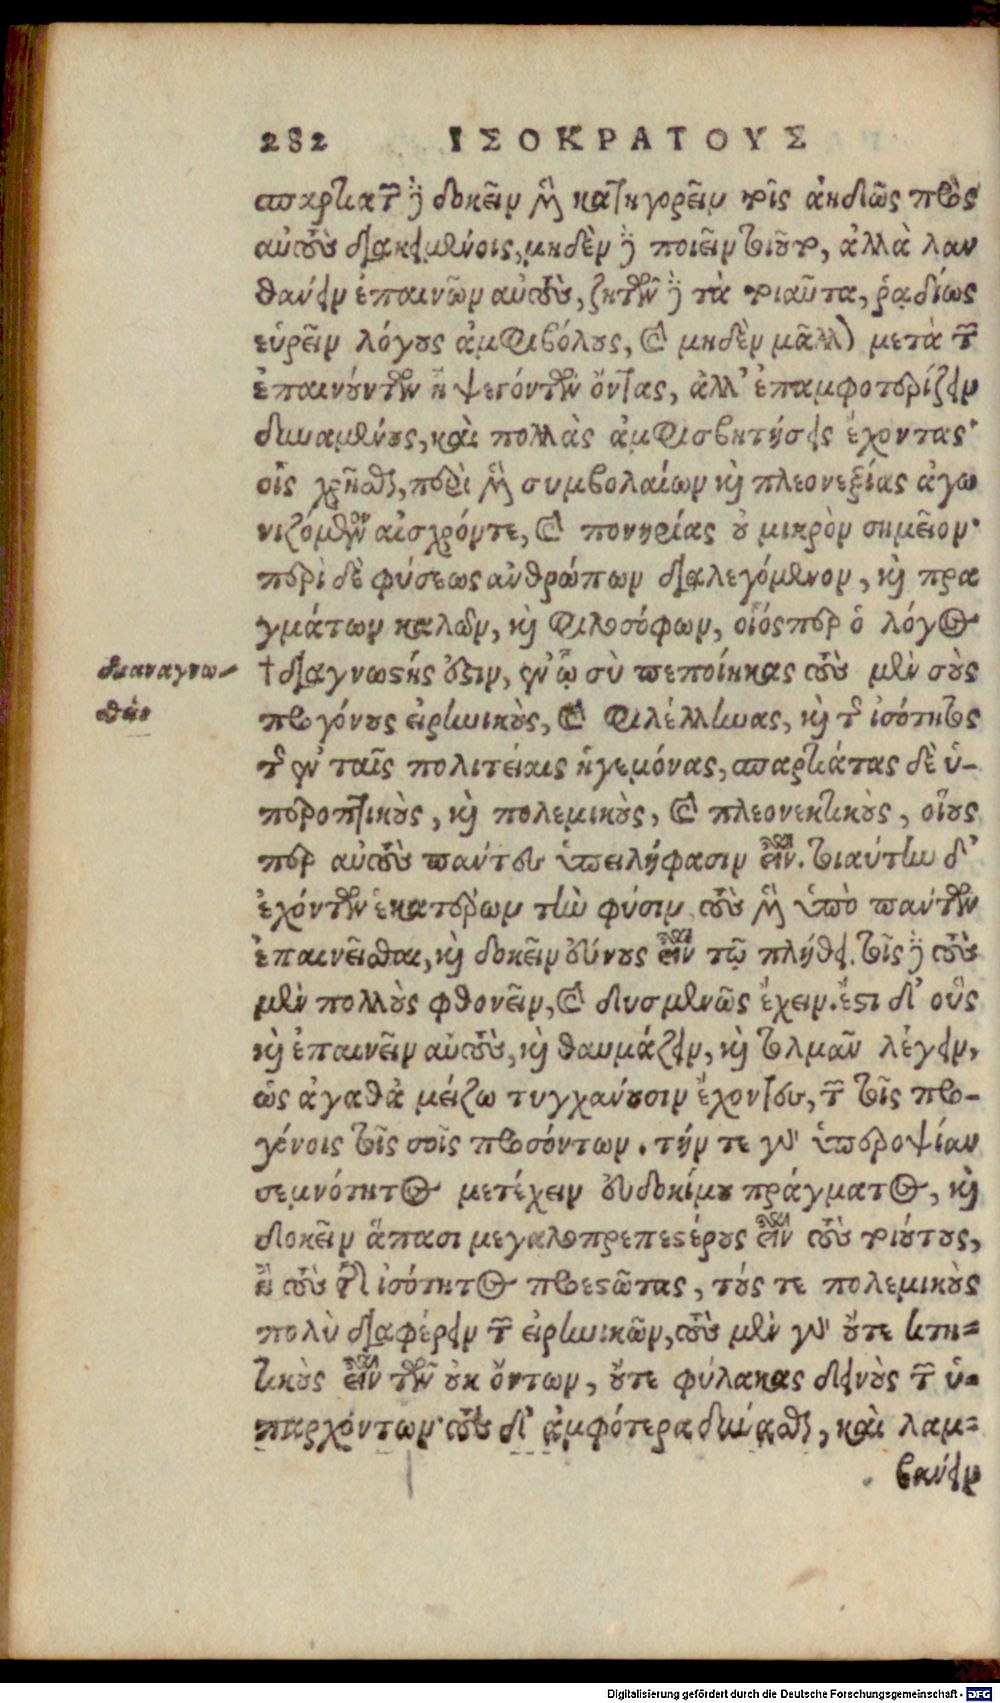 282 ΙΣΟΚΡΑΤΟΥΣ
σπαρτιατῶν δὲ δοκεῖν μὲν κατηγορεῖν τοῖς ἀηδῶς πρὸς
αὐτοὺς διακειμένοις, μηδὲν δὲ ποιεῖν τοιοῦτον, ἀλλὰ λαν
θάνειν ἐπαινῶν αὐτοὺς, ζητῶν δὲ τὰ τοιαῦτα, ῥᾳδίως
εὑρεῖν λόγους ἀμφιβόλους, καὶ μηδὲν μᾶλλον μετὰ τῶν
ἐπαινούντων ἢ ψεγόντων ὄντας, ἀλλ' ἐπαμφοτερίζειν
δυναμένους, καὶ πολλὰς ἀμφισβητήσεις ἔχοντας·
οἷς χρῆσθαι, περὶ μὲν συμβολαίων καὶ πλεονεξίας ἀγω
νιζόμενον αἰσχρόν τε, καὶ πονηρίας οὐ μικρὸν σημεῖον·
περὶ δὲ φύσεως ἀνθρώπων διαλεγόμενον, καὶ πρα
γμάτων καλὸν, καὶ φιλόσοφων, οἷός περ ὁ λόγος
†διαγνωστής ἐστιν, ἐν ᾧ σὺ πεποίηκας τοὺς μὲν σοὺς
προγόνους εἰρηνικοὺς, καὶ φιλέλληνας, καὶ τῆς ἰσότητος
τῆς ἐν ταῖς πολιτείαις ἡγεμόνας, σπαρτιάτας δὲ ὑ-
περοπτικοὺς, καὶ πολεμικοὺς, καὶ πλεονεκτικοὺς, οἵους
περ αὐτοὺς πάντες ὑπειλήφασιν εἶναι. τοιαύτην δ'
ἐχόντων ἑκατέρων τὴν φύσιν τοὺς μὲν ὑπὸ πάντων
ἐπαινεῖσθαι, καὶ δοκεῖν εὔνους εἶναι τῷ πλήθει. τοῖς δὲ τοὺς
μὲν πολλοὺς φθονεῖν, καὶ δυσμενῶς ἔχειν. ἔστι δ' οὓς
καὶ ἐπαινεῖν αὐτοὺς, καὶ θαυμάζειν, καὶ τολμᾶν λέγειν,
ὡς ἀγαθὰ μείζω τυγχάνουσιν ἔχοντες, τῶν τοῖς προ-
γόνοις τοῖς σοῖς προσόντων. τήν τε γὰρ ὑπεροψίαν
σεμνότητος μετέχειν εὐδοκίμου πράγματος, καὶ
δοκεῖν ἅπασι μεγαλοπρεπεστέρους εἶναι τοὺς τοιούτους,
ἢ τοὺς τῆς ἰσότητος προεστῶτας, τούς τε πολεμικοὺς
πολὺ διαφέρειν τῶν εἰρηνικῶν, τοὺς μὲν γὰρ οὔτε κτη-
τικοὺς εἶναι τῶν οὐκ ὄντων, οὔτε φύλακας δεινοὺς τῶν ὑ-
παρχόντων· τοὺς δ' ἀμφότερα δύνασθαι, καὶ λαμ-
βάνειν
διαναγνω-
σθείς
Digitalisierung gefördert durch die Deutsche Forschungsgemeinschaft - DFG